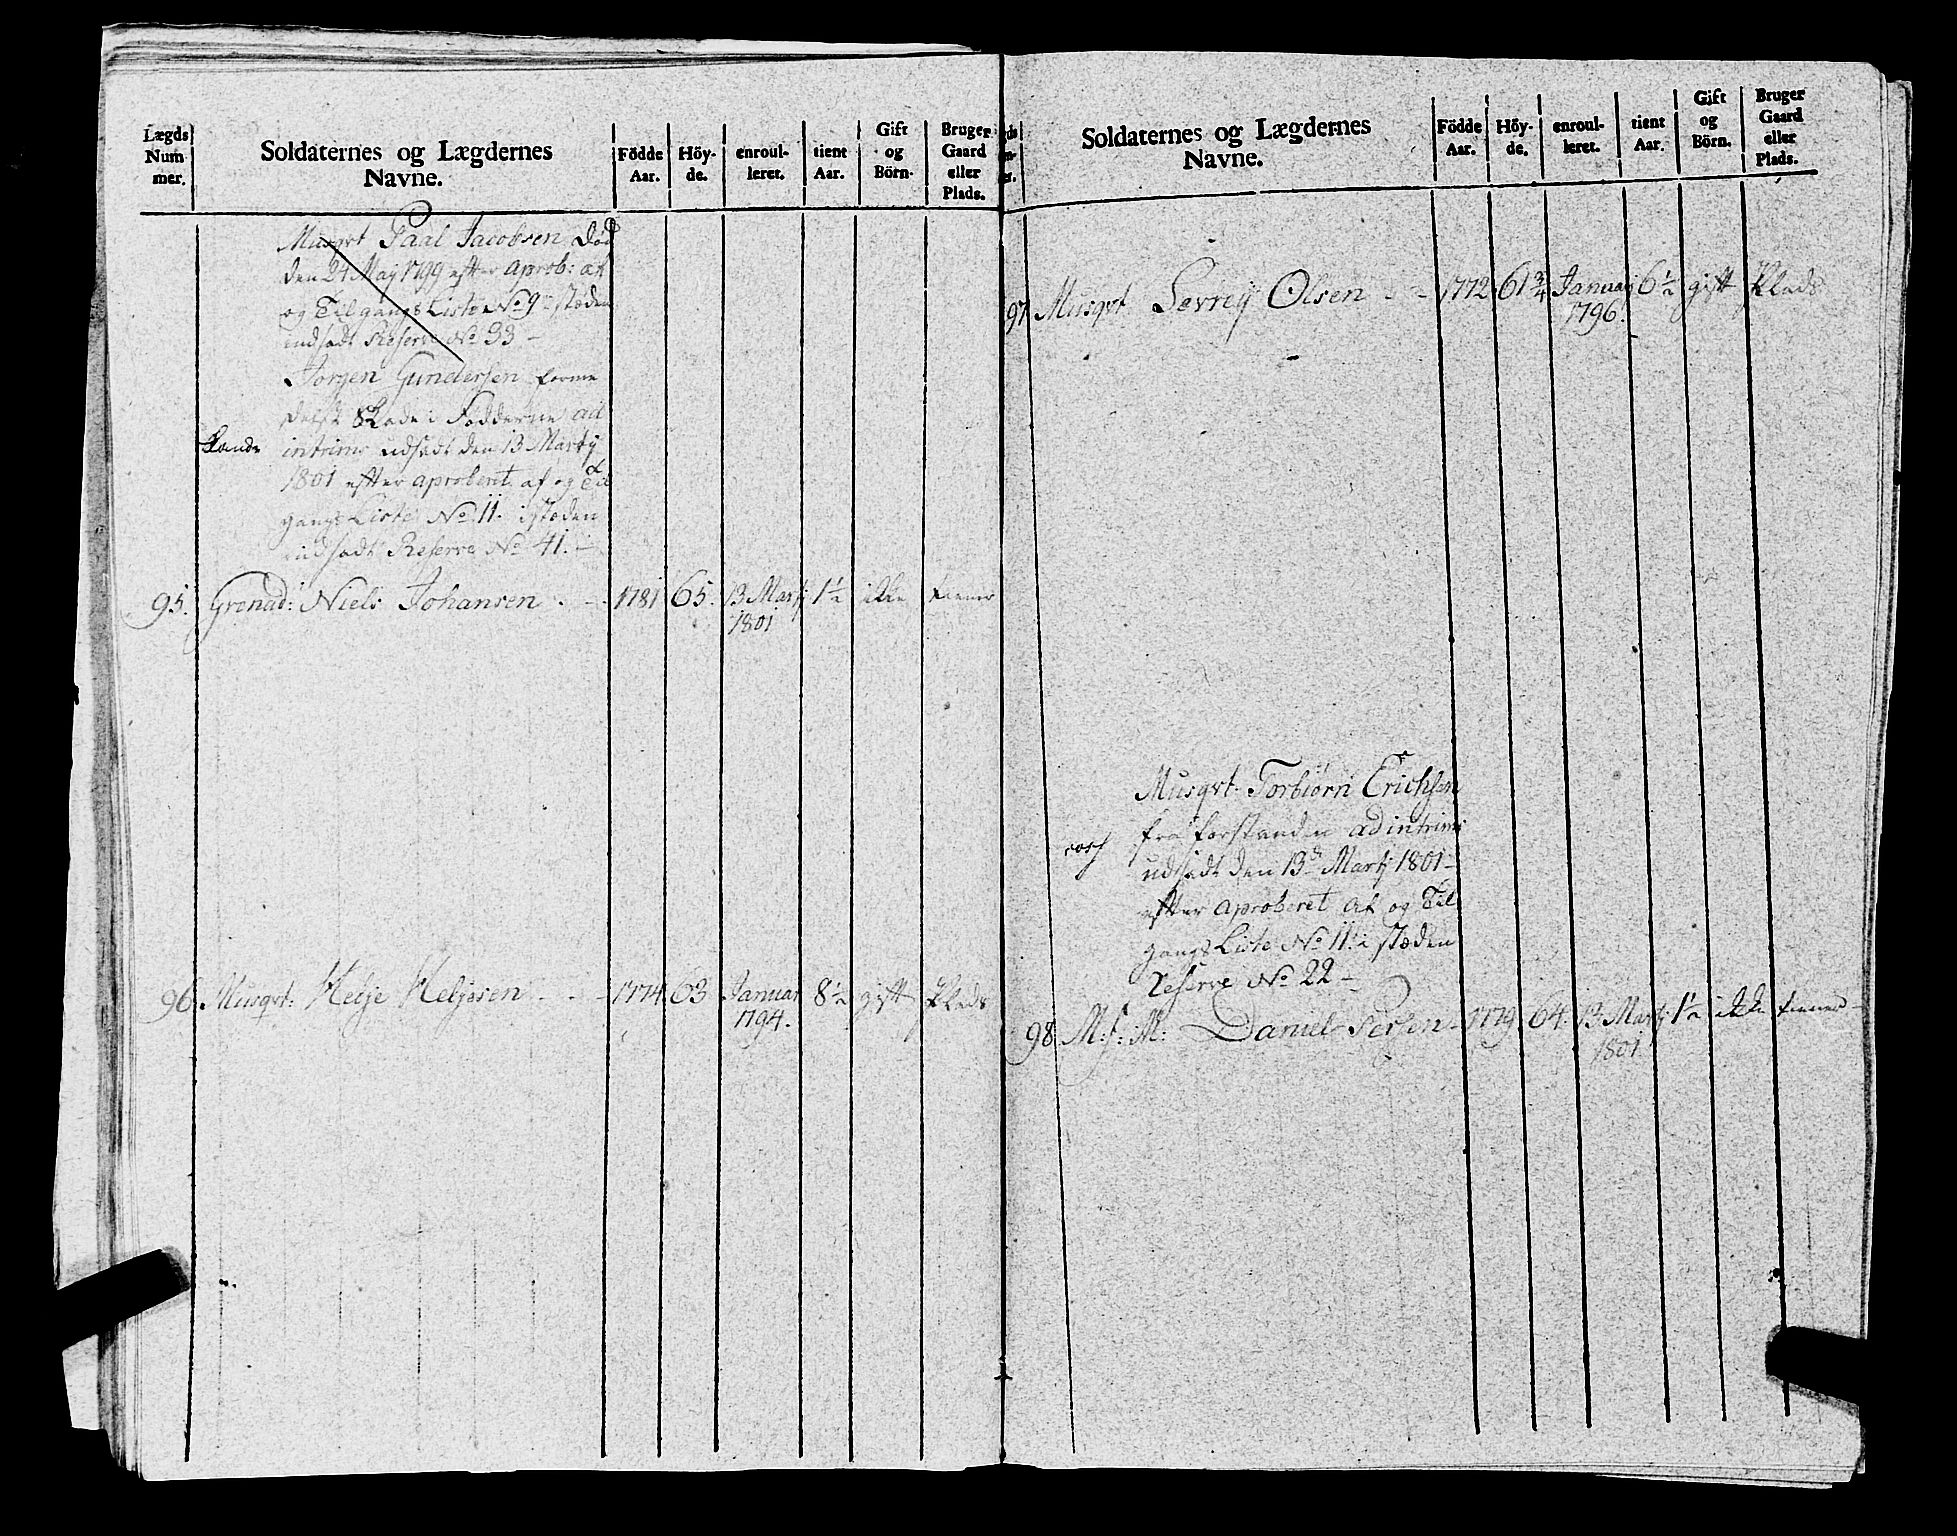 Lægds Num mer.
Soldaternes og Lægdernes Navne.
Födde Aar.
Höy-de.
enroul-leret.
tient Aar.
Gift og Börn.
Bruger Gaard eller Plads.
Musqrt Paal Jacobsen død
den 24 May 1799 efter aprob: af
og Tilgangs Liste No 9 i stæden
indsadt Reserve No 33 –
Jørgen Gundersen forme
delst Skade i Fødderne ad
intrims udsadt den 13 Martij
1801 efter aproberet af og Til
gangs Liste No 11. i stæden
indsadt Reserve No 41. –
95. Grenad: Niels Johansen 1781 65. 13 Martj 1½ ikke tienner
1801
96 Musqrt: Helje Heljesen 1774 63 Januar 8½ gift Plads
1794.
Soldaternes og Lægdernes Navne.
Födde Aar.
Höy-de.
enroul-leret.
tient Aar.
Gift og Börn.
Bruger Gaard eller Plads.
97 Musqrt Sevrey Olsen 1772 61¾ Januarj 6½ gift Plads
1796.
Musqrt Torbiørn Erichsen
fra forstanden ad intrims
udsadt den 13de Martj 1801 –
efter aproberet af og Til
gangs Liste No 11 i stæden
Reserve No 22 –
98 M: f: M: Daniel Persen 1779 64. 13 Martj 1½ ikke tienner –
1801